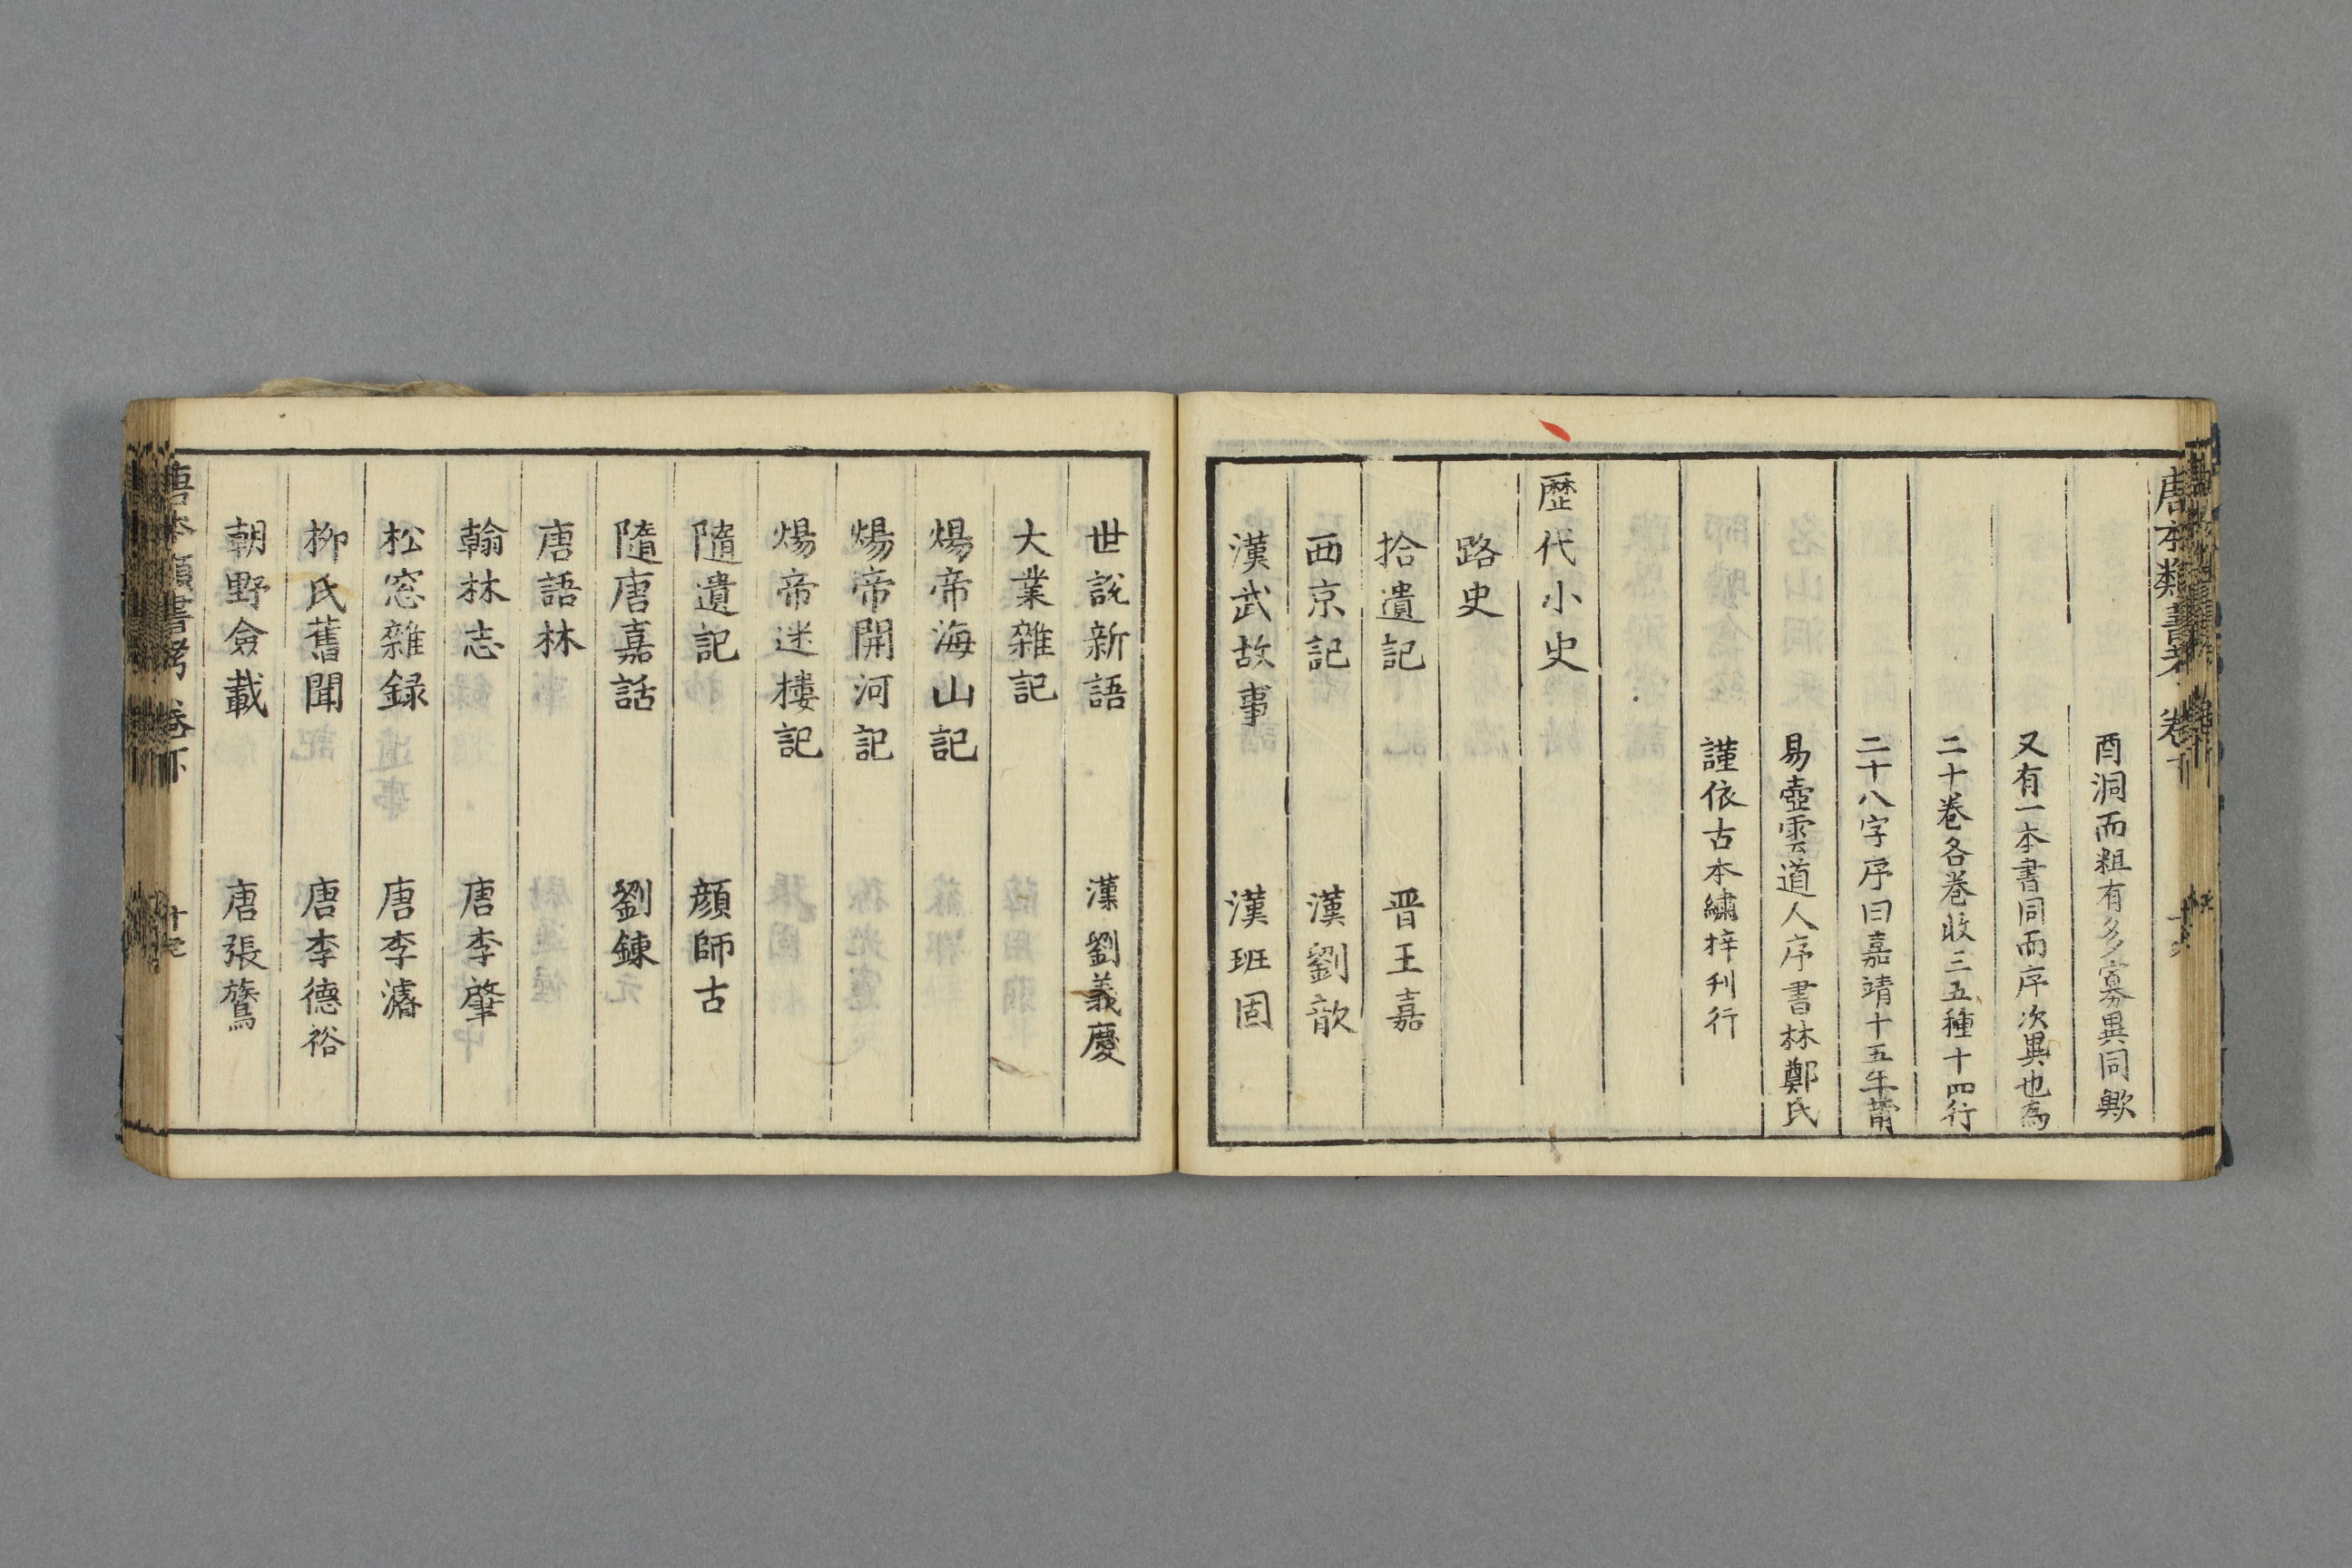 唐本類書考 卷下
酉洞而粗有多寡異同歟
又有一本書同而序次異也為
二十卷各卷收三五種十四行
二十八字序曰嘉靖十五年莆
易壺雲道人序書林鄭氏
謹依古本繡梓刊行
歷代小史
路史
拾遺記 晋王嘉
西京記 漢劉歆
漢武故事 漢班固
世説新語 漢劉義慶
大業雜記
煬帝海山記
煬帝開河記
煬帝迷樓記
隨遺記 顔師古
隨唐嘉話 劉鍊
唐語林
翰林志 唐李肇
松窓雜録 唐李濬
柳氏舊聞 唐李德裕
朝野僉載 唐張鷟
唐本類書考 卷下 十七